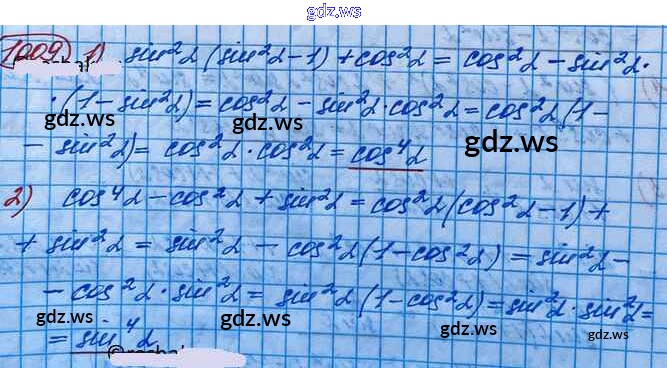 gdz.ws
1009 1) sin²α (sin²α - 1) + cos²α = cos²α - sin²α ·
· (1 - sin²α) = cos²α - sin²α · cos²α = cos²α (1 -
gdz.ws gdz.ws gdz.ws
- sin²α) = cos²α · cos²α = cos⁴α
2) cos⁴α - cos²α + sin²α = cos²α (cos²α - 1) +
+ sin²α = sin²α - cos²α (1 - cos²α) = sin²α -
- cos²α · sin²α = sin²α (1 - cos²α) = sin²α · sin²α =
gdz.ws gdz.ws gdz.ws gdz.ws
= sin⁴α